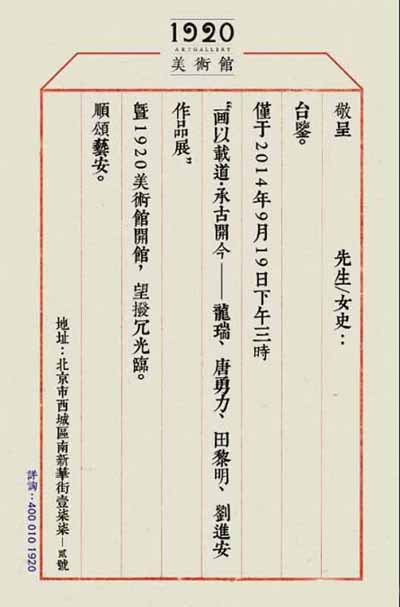 1920
ARTGALLERY
美術館
敬呈 先生/女史：
台鑒。
僅于2014年9月19日下午三時
“画以載道·承古開今——龍瑞、唐勇力、田黎明、劉進安
作品展”
暨1920美術館開館，望撥冗光臨。
順頌藝安。
地址：北京市西城區南新華街壹柒柒－貳號
詳詢：400 010 1920